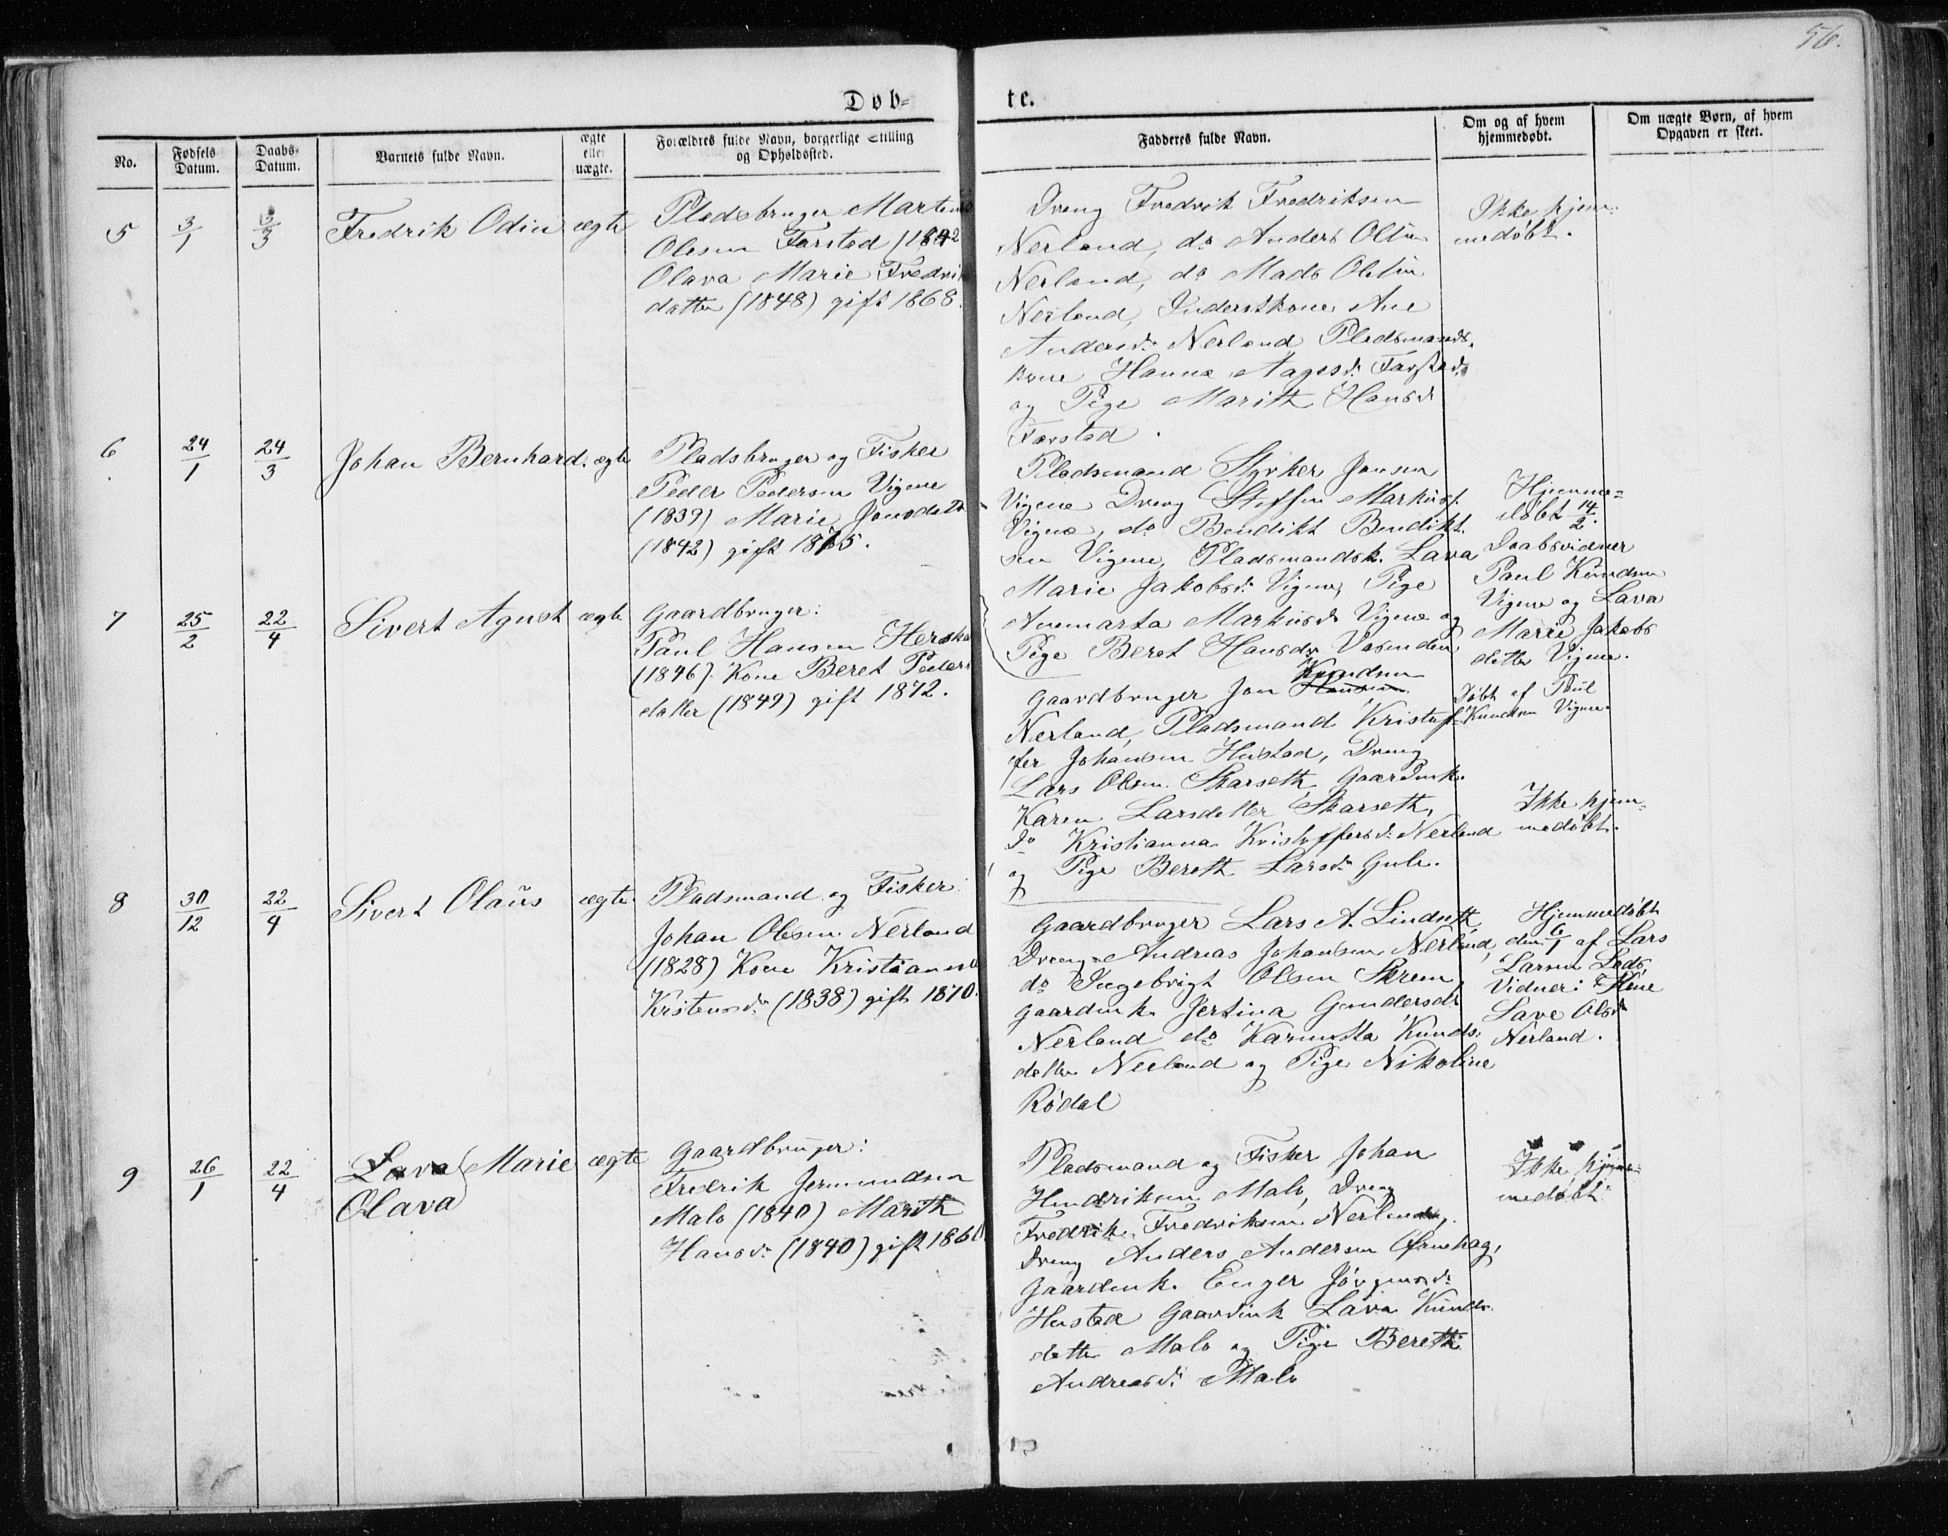 56.
Døb-
te.
No.
Fødsels Datum.
Daabs-Datum.
Barnets fulde Navn.
ægte eller uægte.
Forældres fulde Navn, borgerlige Stilling og Opholdssted.
Fadderes fulde Navn.
Om og af hvem hjemmedøbt.
Om uægte Børn, af hvem Opgaven er skeet.
5
3/1
3/3
Fredrik Odin
ægte
Pladsbruger Martinus
Olesen Farstad (1842
Olava Marie Fredrik
datter (1848) gift 1868.
Dreng Fredrik Fredriksen
Nerland, do Anders Olsen
Nerland, do Mads Olsen
Nerland, Inderstkone Ane
Andersd. Nerland Pladsmands-
kone Hanna Aagesd. Farstad,
og Pige Marith Hansd
Farstad.
Ikke hjem-
medøbt.
6
24/1
24/3
Johan Bernhard.
ægte
Pladsbruger og Fisker
Peder Pedersen Vigene
(1839) Marie Jonsdatr
(1842) gift 1865.
Pladsmand Styrker Jonsen
Vigene Dreng Steffen Markusf.
Vigene, do Bendikt Bendikt
sen Vigene, Pladsmandsk. Lava
Marie Jakobsd. Vigene, Pige
Annmarta Markusd. Vigene og
Pige Beret Hansdr
Hjemme-
døbt 14/2.
Daabsvidner
Paul Knudsen
Vigene og Lava
Marie Jakobs
datter Vigene.
Døbt af Paul
Knudsen Vigene.
7
25/2
22/4
Sivert Agust
ægte
Gaardbruger:
Paul Hansen
(1846). Kone Beret Peders
datter (1849) gift 1872.
Knudsen
Gaardbruger Jon Hansen
Nerland, Pladsmand Kristof-
fer Johansen Hustad, Dreng
Lars Olsen Skarseth, Gaardmk.
Karen Larsdatter Skarseth,
do Kristianna Kristoffersd. Nerland
og Pige Bereth Larsd. Gule.
Ikke hjem-
medøbt.
8
30/12
22/4
Sivert Olaus
ægte
Pladsmand og Fisker:
Johan Olesen Nerland
(1828) Kone Kristianna
Kristensdr (1838) gift 1870.
Gaardbruger Lars A. Lindseth,
Dreng Andreas Johansen Nerland,
do Ingebrigt Olsen Skrem
Gaardmk. Jertina Gundersdr
Nerland do Karenmarta Knuds-
datter Nerland og Pige Nikoline
Rødal
Hjemmedøbt
den 6/1 af Lars
Larsen
Vidner:
Lave Olsdr
Nerland.
9
26/1
22/4
Lava Marie
Olava
ægte
Gaardbruger:
Fredrik Jermundsen
Malo (1840) Marith
Hansdr (1840) gift
Pladsmand og Fisker Johan
Hendriksen Malo, Dreng
Fredrik Fredriksen Nerland,
Dreng Anders Andersen Ørnehag,
Gaardmk. Enger Jørgensd.
Hustad Gaardmk Lava Knuds-
datter Malo og Pige Bereth
Andreasd. Malo
Ikke hjem-
medøbt.